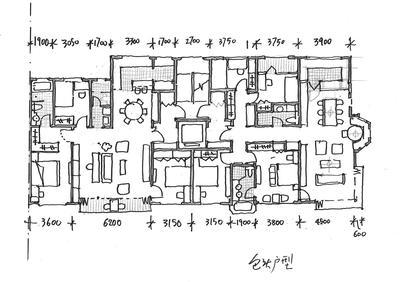 1900 3050 1700 3300 1700 2700 3750 3750 3900
3600 6200 3150 3150 1900 3800 4500
600
户型